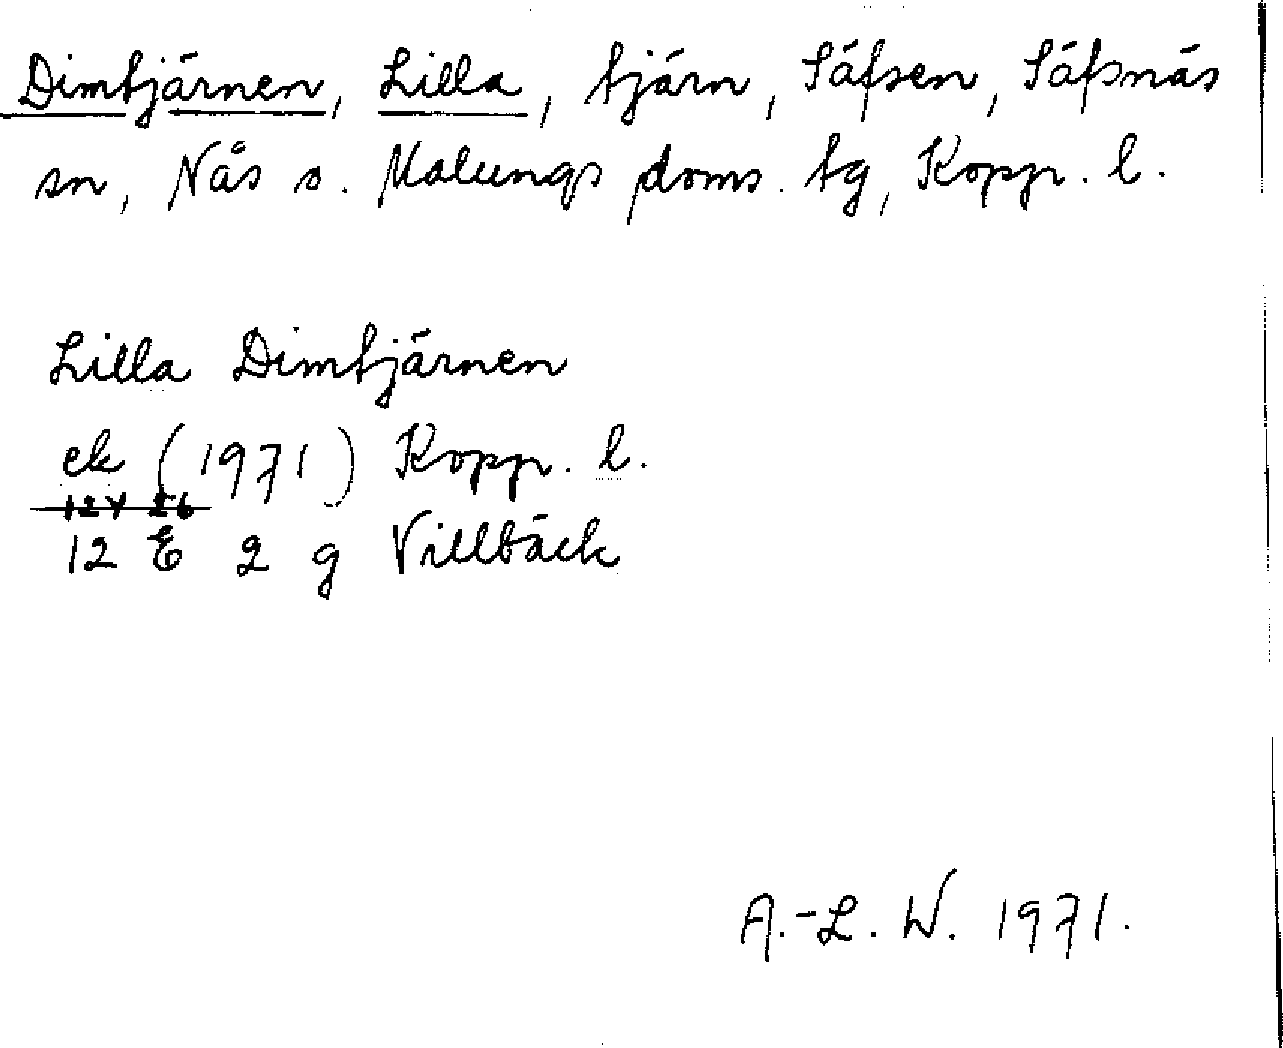 Dimtjärnen, Lilla, tjärn, Säfsen, Säfsnäs
sn, Nås o. Malungs doms. tg, Kopp. l.
Lilla Dimtjärnen
ek (1971) Kopp. l.
12 E 2 g Villbäck
A.-L. W. 1971.